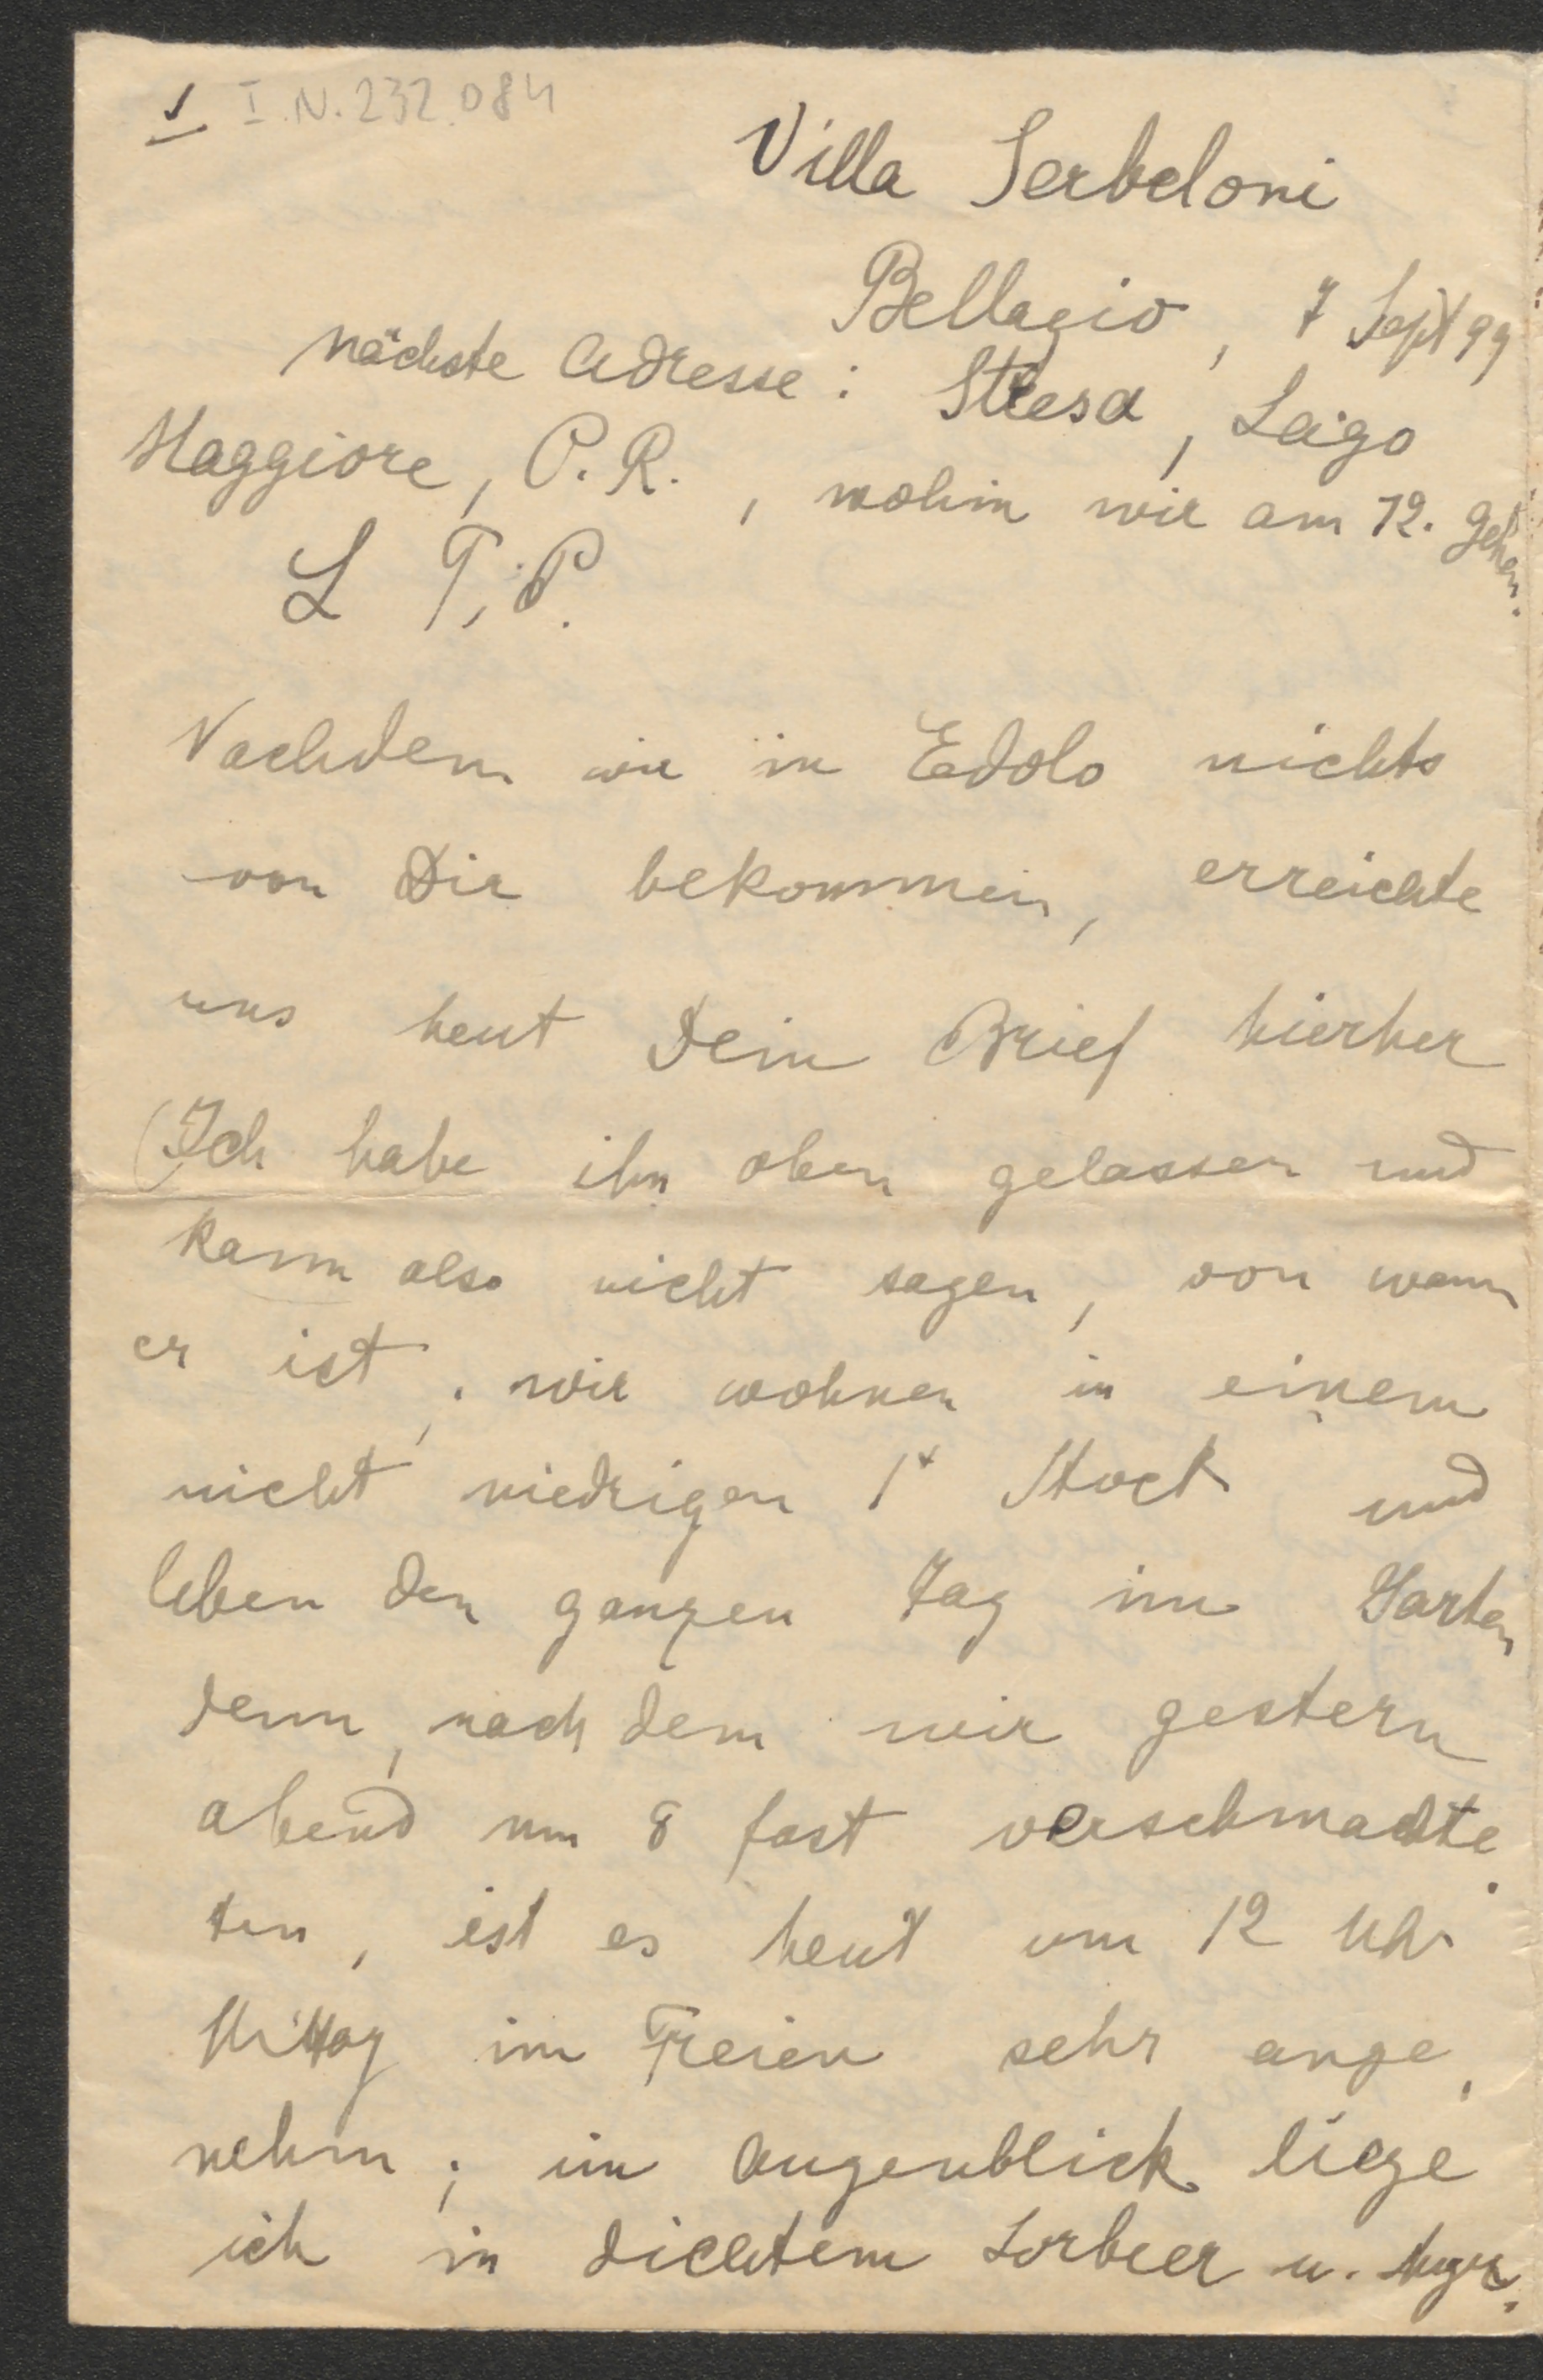 1 I.N. 232.084
Villa Serbeloni
Bellagio, 7 Sept 99
nächste Adresse: Stresa, Lago
Maggiore, P. R., wohin wir am 12. gehen.
L T. P.
Nachdem wir in Edolo nichts
von Dir bekommen, erreichte
uns heut Dein Brief hierher
(Ich habe ihn oben gelassen und
kann also nicht sagen, von wann
er ist; wir wohnen in einem
nicht niedrigen 1t Stock und
leben den ganzen Tag im Garten
denn, nachdem wir gestern
abend um 8 fast verschmachte
ten, ist es heut um 12 Uhr
Mittag im Freien sehr ange
nehm; im Augenblick liege
ich in dichtem Lorbeer u.